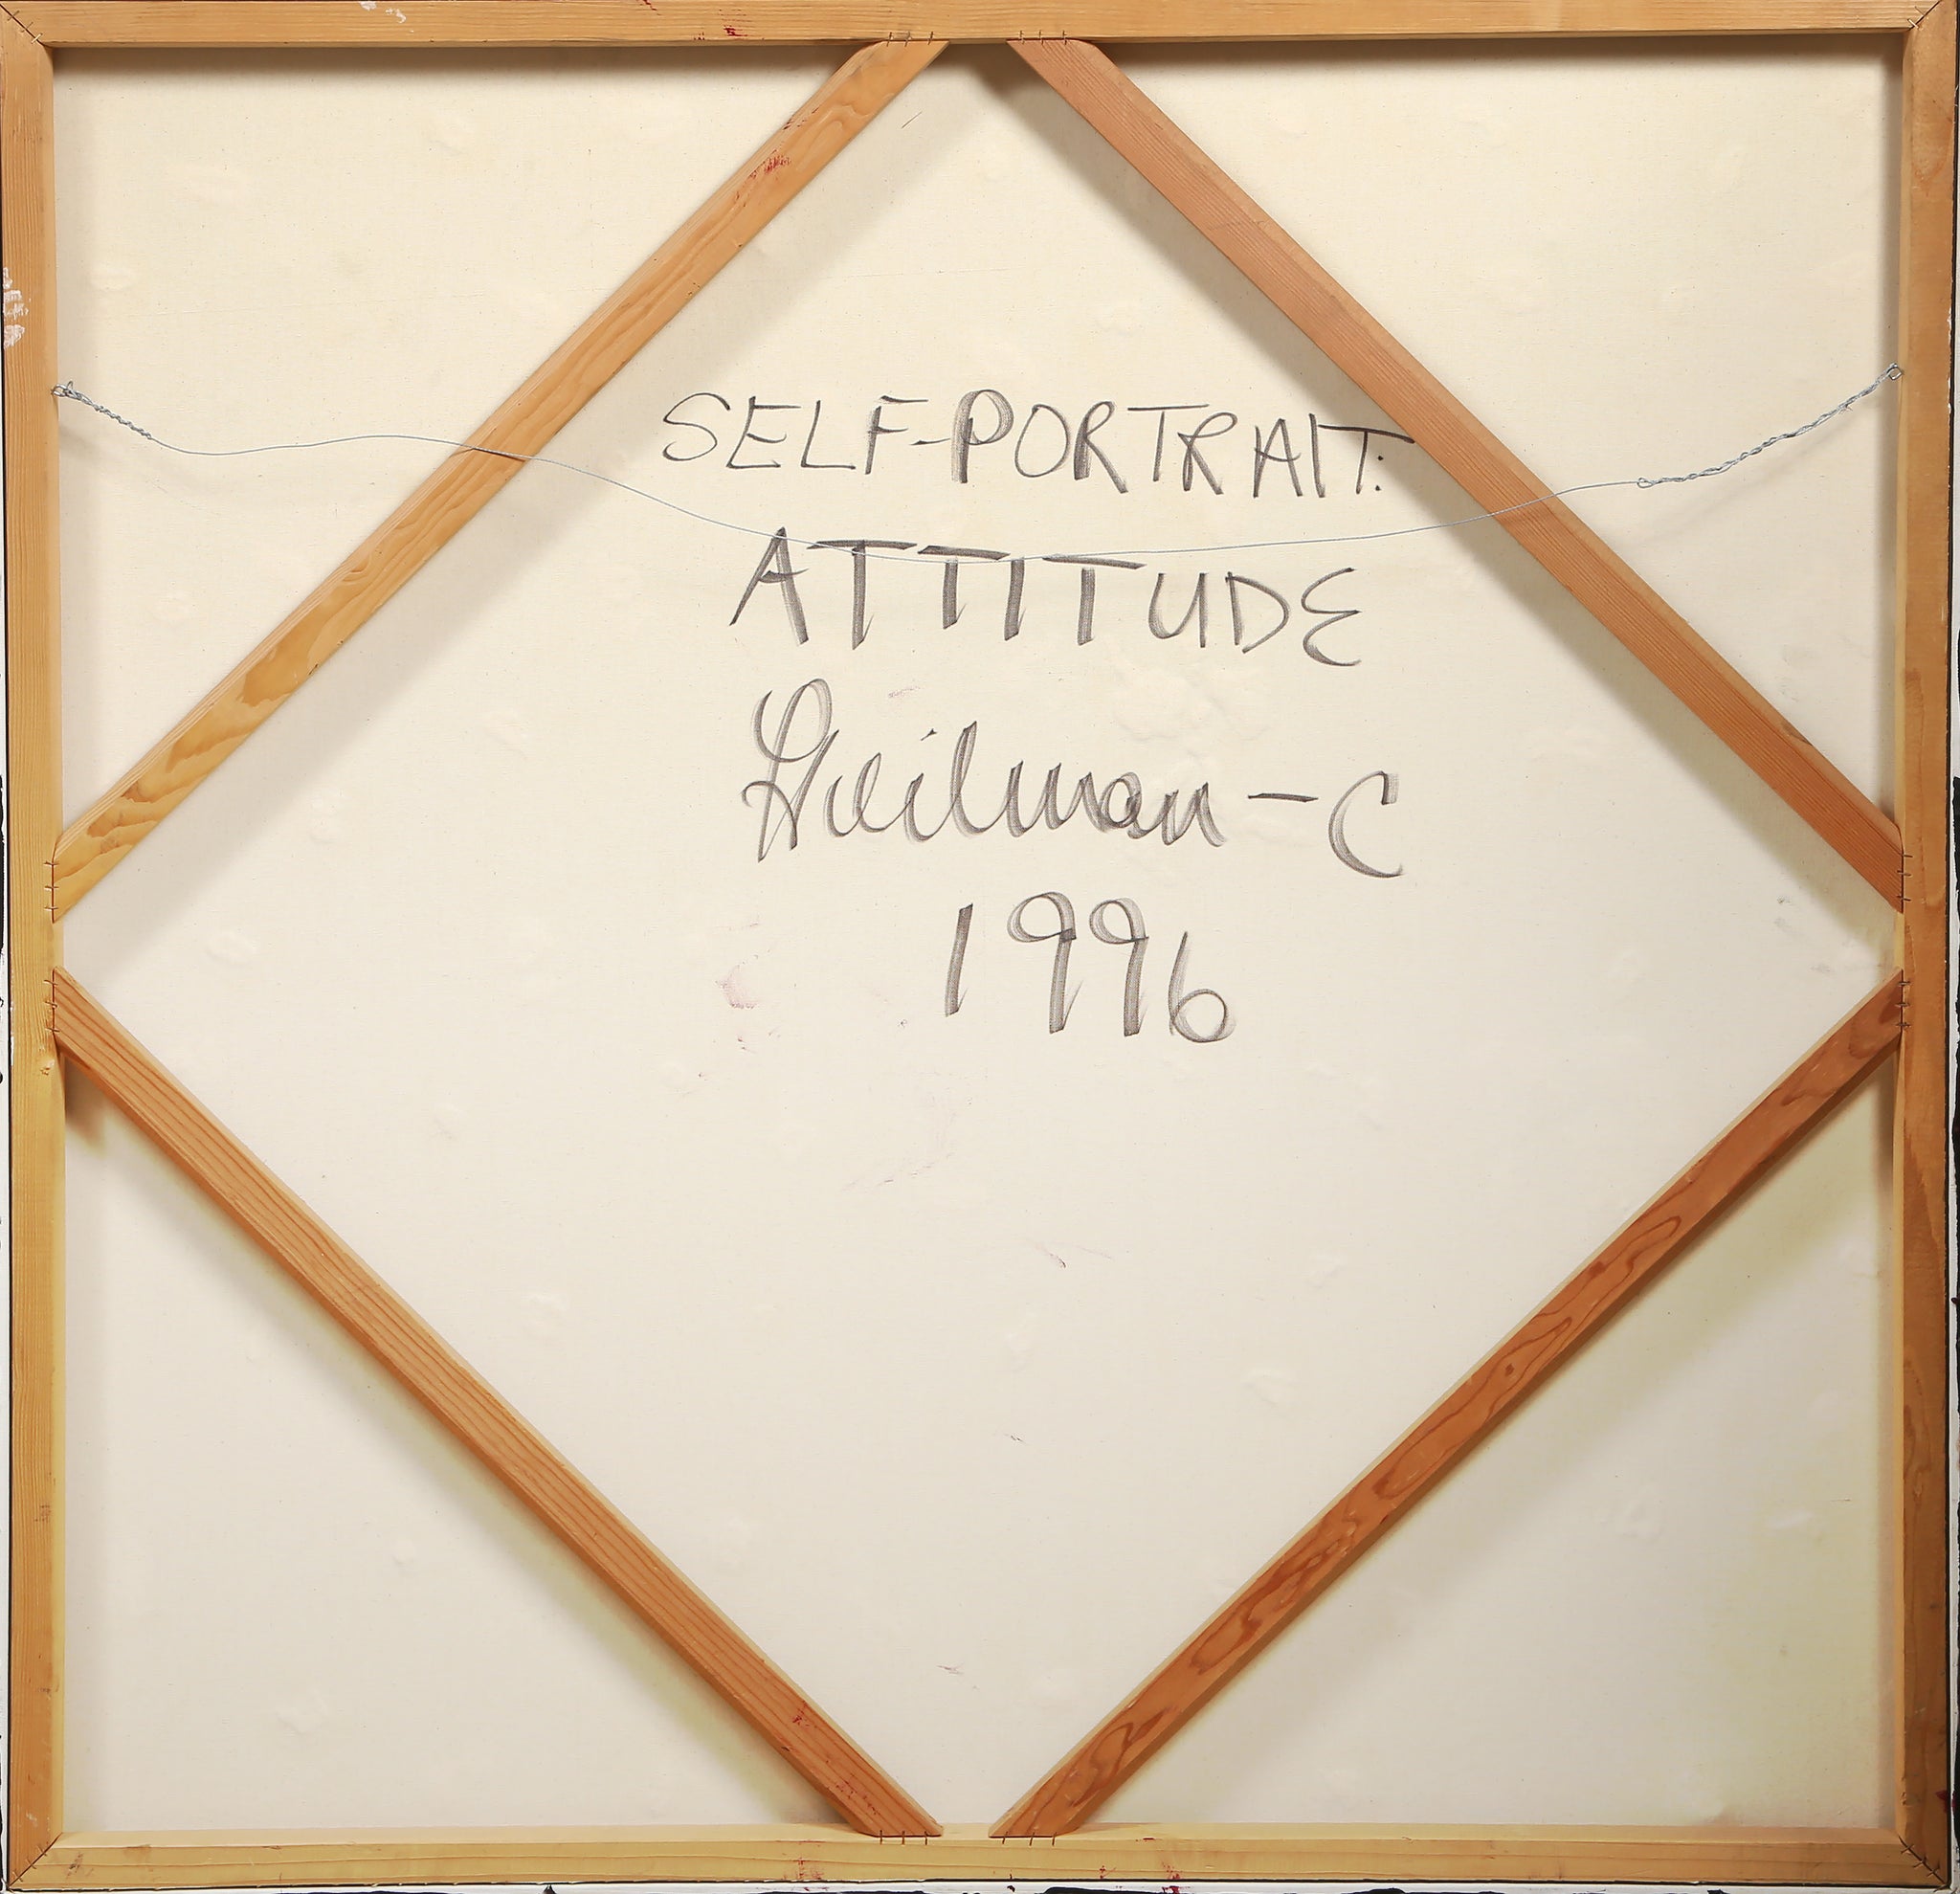 SELF-PORTRAIT:
ATTITUDE
Heilman-C
1996